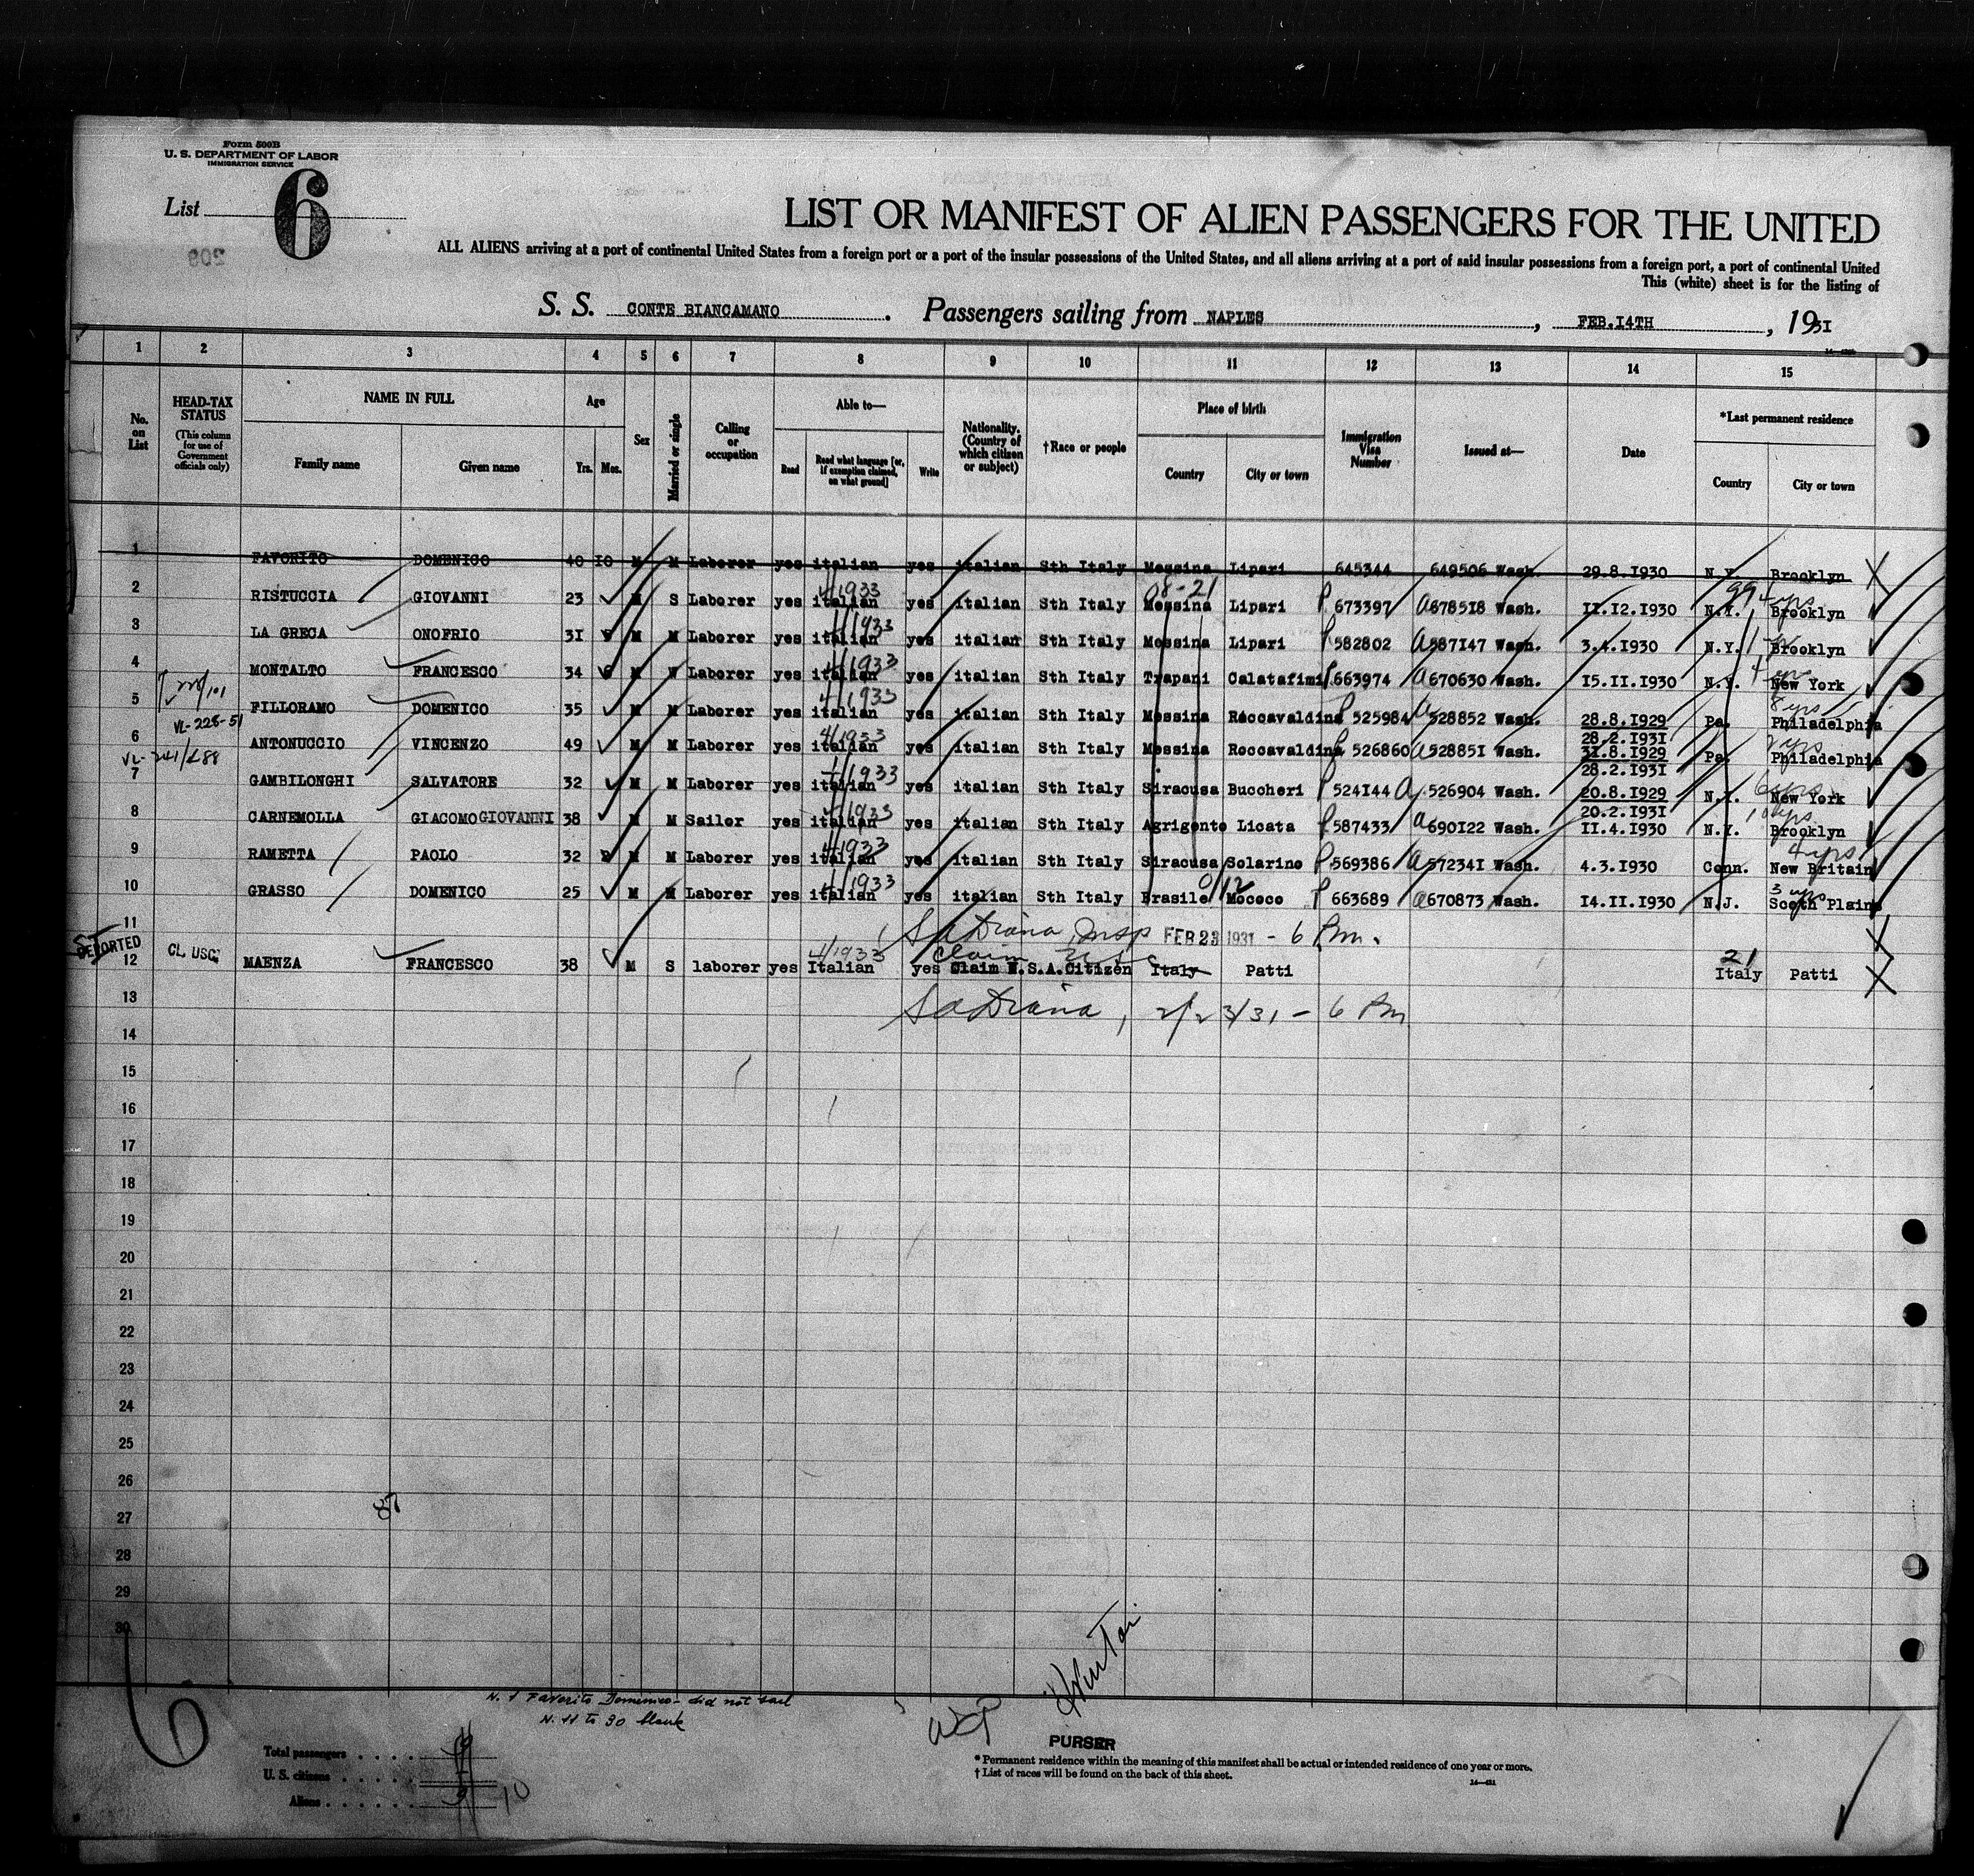 Form 500B
U. S. DEPARTMENT OF LABOR
IMMIGRATION SERVICE
List 6
209
LIST OR MANIFEST OF ALIEN PASSENGERS FOR THE UNITED
ALL ALIENS arriving at a port of continental United States from a foreign port or a port of the insular possessions of the United States, and all aliens arriving at a port of said insular possessions from a foreign port, a port of continental United
This (white) sheet is for the listing of
S. S. CONTE BIANCAMANO. Passengers sailing from NAPLES, FEB.14TH, 1931
1 2 3 4 5 6 7 8 9 10 11 12 13 14 15
No. on List
HEAD-TAX STATUS
(This column for use of Government officials only)
NAME IN FULL
Family name Given name
Age
Yrs. Mos.
Sex
Married or single
Calling or occupation
Able to—
Read
Read what language [or, if exemption claimed, on what ground]
Write
Nationality. (Country of which citizen or subject)
†Race or people
Place of birth
Country City or town
Immigration Visa Number
Issued at—
Date
*Last permanent residence
Country City or town
1 FAVORITO DOMENICO 40 10 M M Laborer yes italian yes italian Sth Italy Messina Lipari 645344 649506 Wash. 29.8.1930 N.Y. Brooklyn
4/1933 08-21 99 4 yrs
2 RISTUCCIA GIOVANNI 23 M S Laborer yes italian yes italian Sth Italy Messina Lipari P 673397 a 678518 Wash. 11.12.1930 N.Y. Brooklyn
4/1933
3 LA GRECA ONOFRIO 31 M M Laborer yes italian yes italian Sth Italy Messina Lipari P 582802 a 587147 Wash. 3.4.1930 N.Y. Brooklyn
4/1933 4 yrs
4 MONTALTO FRANCESCO 34 M W Laborer yes italian yes italian Sth Italy Trapani Calatafimi P 663974 a 670630 Wash. 15.11.1930 N.Y. New York
4/1933 8 yrs
5 FILLORAMO DOMENICO 35 M M Laborer yes italian yes italian Sth Italy Messina Roccavaldina P 525984 a 528852 Wash. 28.8.1929 Pa. Philadelphia
VL-228-51
4/1933 28.2.1931 yrs
6 ANTONUCCIO VINCENZO 49 M M Laborer yes italian yes italian Sth Italy Messina Roccavaldina P 526860 a 528851 Wash. 31.8.1929 Pa. Philadelphia
VL-241/288
4/1933 28.2.1931 6 yrs
7 GAMBILONGHI SALVATORE 32 M M Laborer yes italian yes italian Sth Italy Siracusa Buccheri P 524144 a 526904 Wash. 20.8.1929 N.Y. New York
4/1933 20.2.1931 yrs.
8 CARNEMOLLA GIACOMO GIOVANNI 38 M M Sailor yes italian yes italian Sth Italy Agrigento Licata P 587433 a 690122 Wash. 11.4.1930 N.Y. Brooklyn
4/1933 4 yrs
9 RAMETTA PAOLO 32 M M Laborer yes italian yes italian Sth Italy Siracusa Solarino P 569386 a 572341 Wash. 4.3.1930 Conn. New Britain
4/1933 0/12 3 yrs
10 GRASSO DOMENICO 25 M M Laborer yes italian yes italian Sth Italy Brasile Mococo P 663689 a 670873 Wash. 14.11.1930 N.J. Scoth Plains
11 Insp FEB 23 1931 - 6 Pm.
DEPORTED 4/1933 Claim 21
12 CL. USC. MAENZA FRANCESCO 38 M S laborer yes Italian yes Claim U.S.A.Citizen Italy Patti Italy Patti
13 2/23/31 - 6 Pm
14
15
16
17
18
19
20
21
22
23
24
25
26
87
27
28
29
30
6
N. 1 Favorito Domenico - did not sail
N. 11 to 30 blank
Total passengers
U. S. citizens
Aliens 10
PURSER
* Permanent residence within the meaning of this manifest shall be actual or intended residence of one year or more.
† List of races will be found on the back of this sheet.